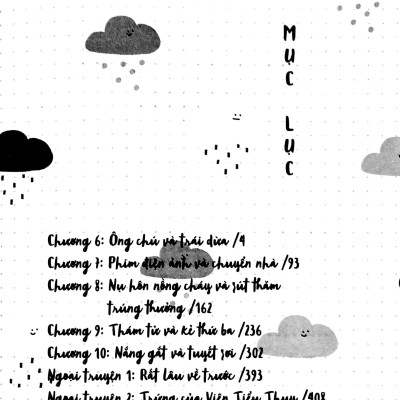 MỤC LỤC
Chương 6: Ông chú và trái dừa /4
Chương 7: Phim điện ảnh và chuyển nhà /93
Chương 8: Nụ hôn nồng cháy và rút thăm
trúng thưởng /162
Chương 9: Thám tử và kẻ thứ ba /236
Chương 10: Nắng gắt và tuyết rơi /302
Ngoại truyện 1: Rất lâu về trước /393
Ngoại truyện 2: Trứng của Viên Tiểu Thụy /408